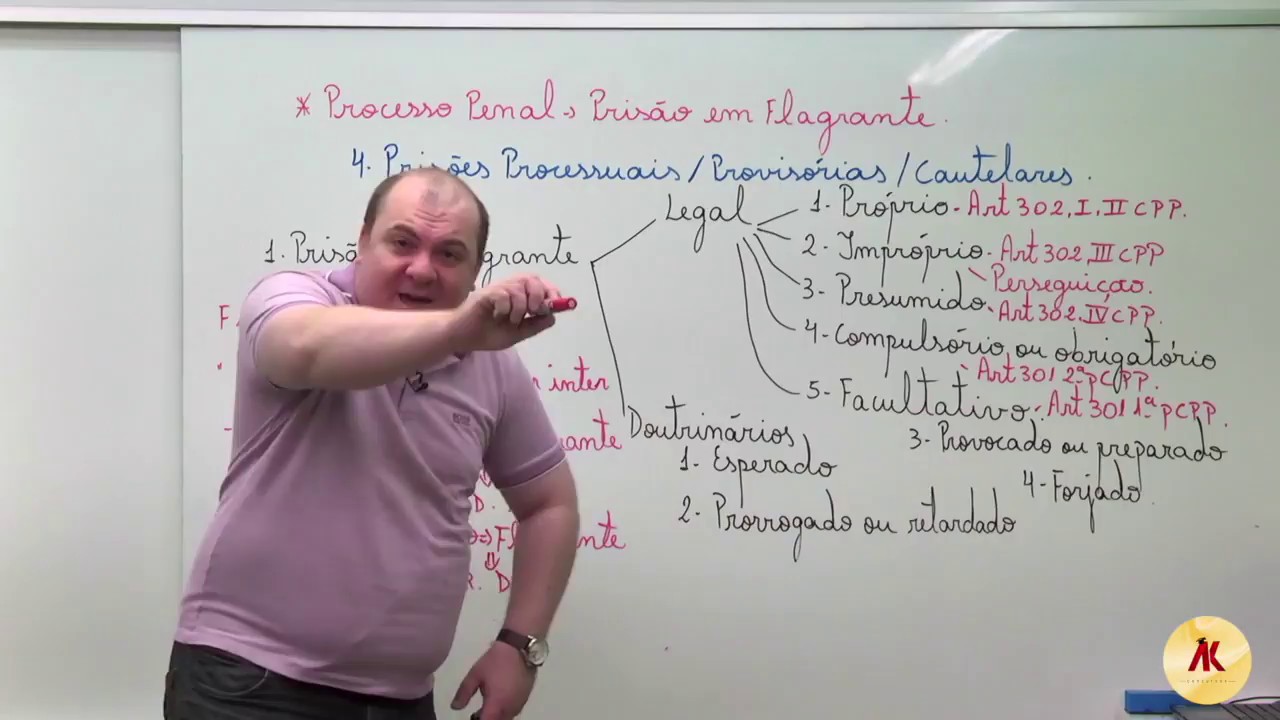 * Processo Penal → Prisão em Flagrante.
4. Prisões Processuais / Provisórias / Cautelares.
Legal
1. Prisã grante
1- Próprio - Art 302, I, II CPP.
2- Impróprio - Art 302, III CPP
Perseguição.
3- Presumido - Art 302, IV CPP.
4- Compulsório ou obrigatório
Art 301 2ª p CPP.
5- Facultativo: Art 301 1ª p CPP.
F
inter
ante
D.
⇒ Fl nte
⇓
R. D
Doutrinários
1- Esperado
2- Prorrogado ou retardado
3- Provocado ou preparado
4- Forjado
AK